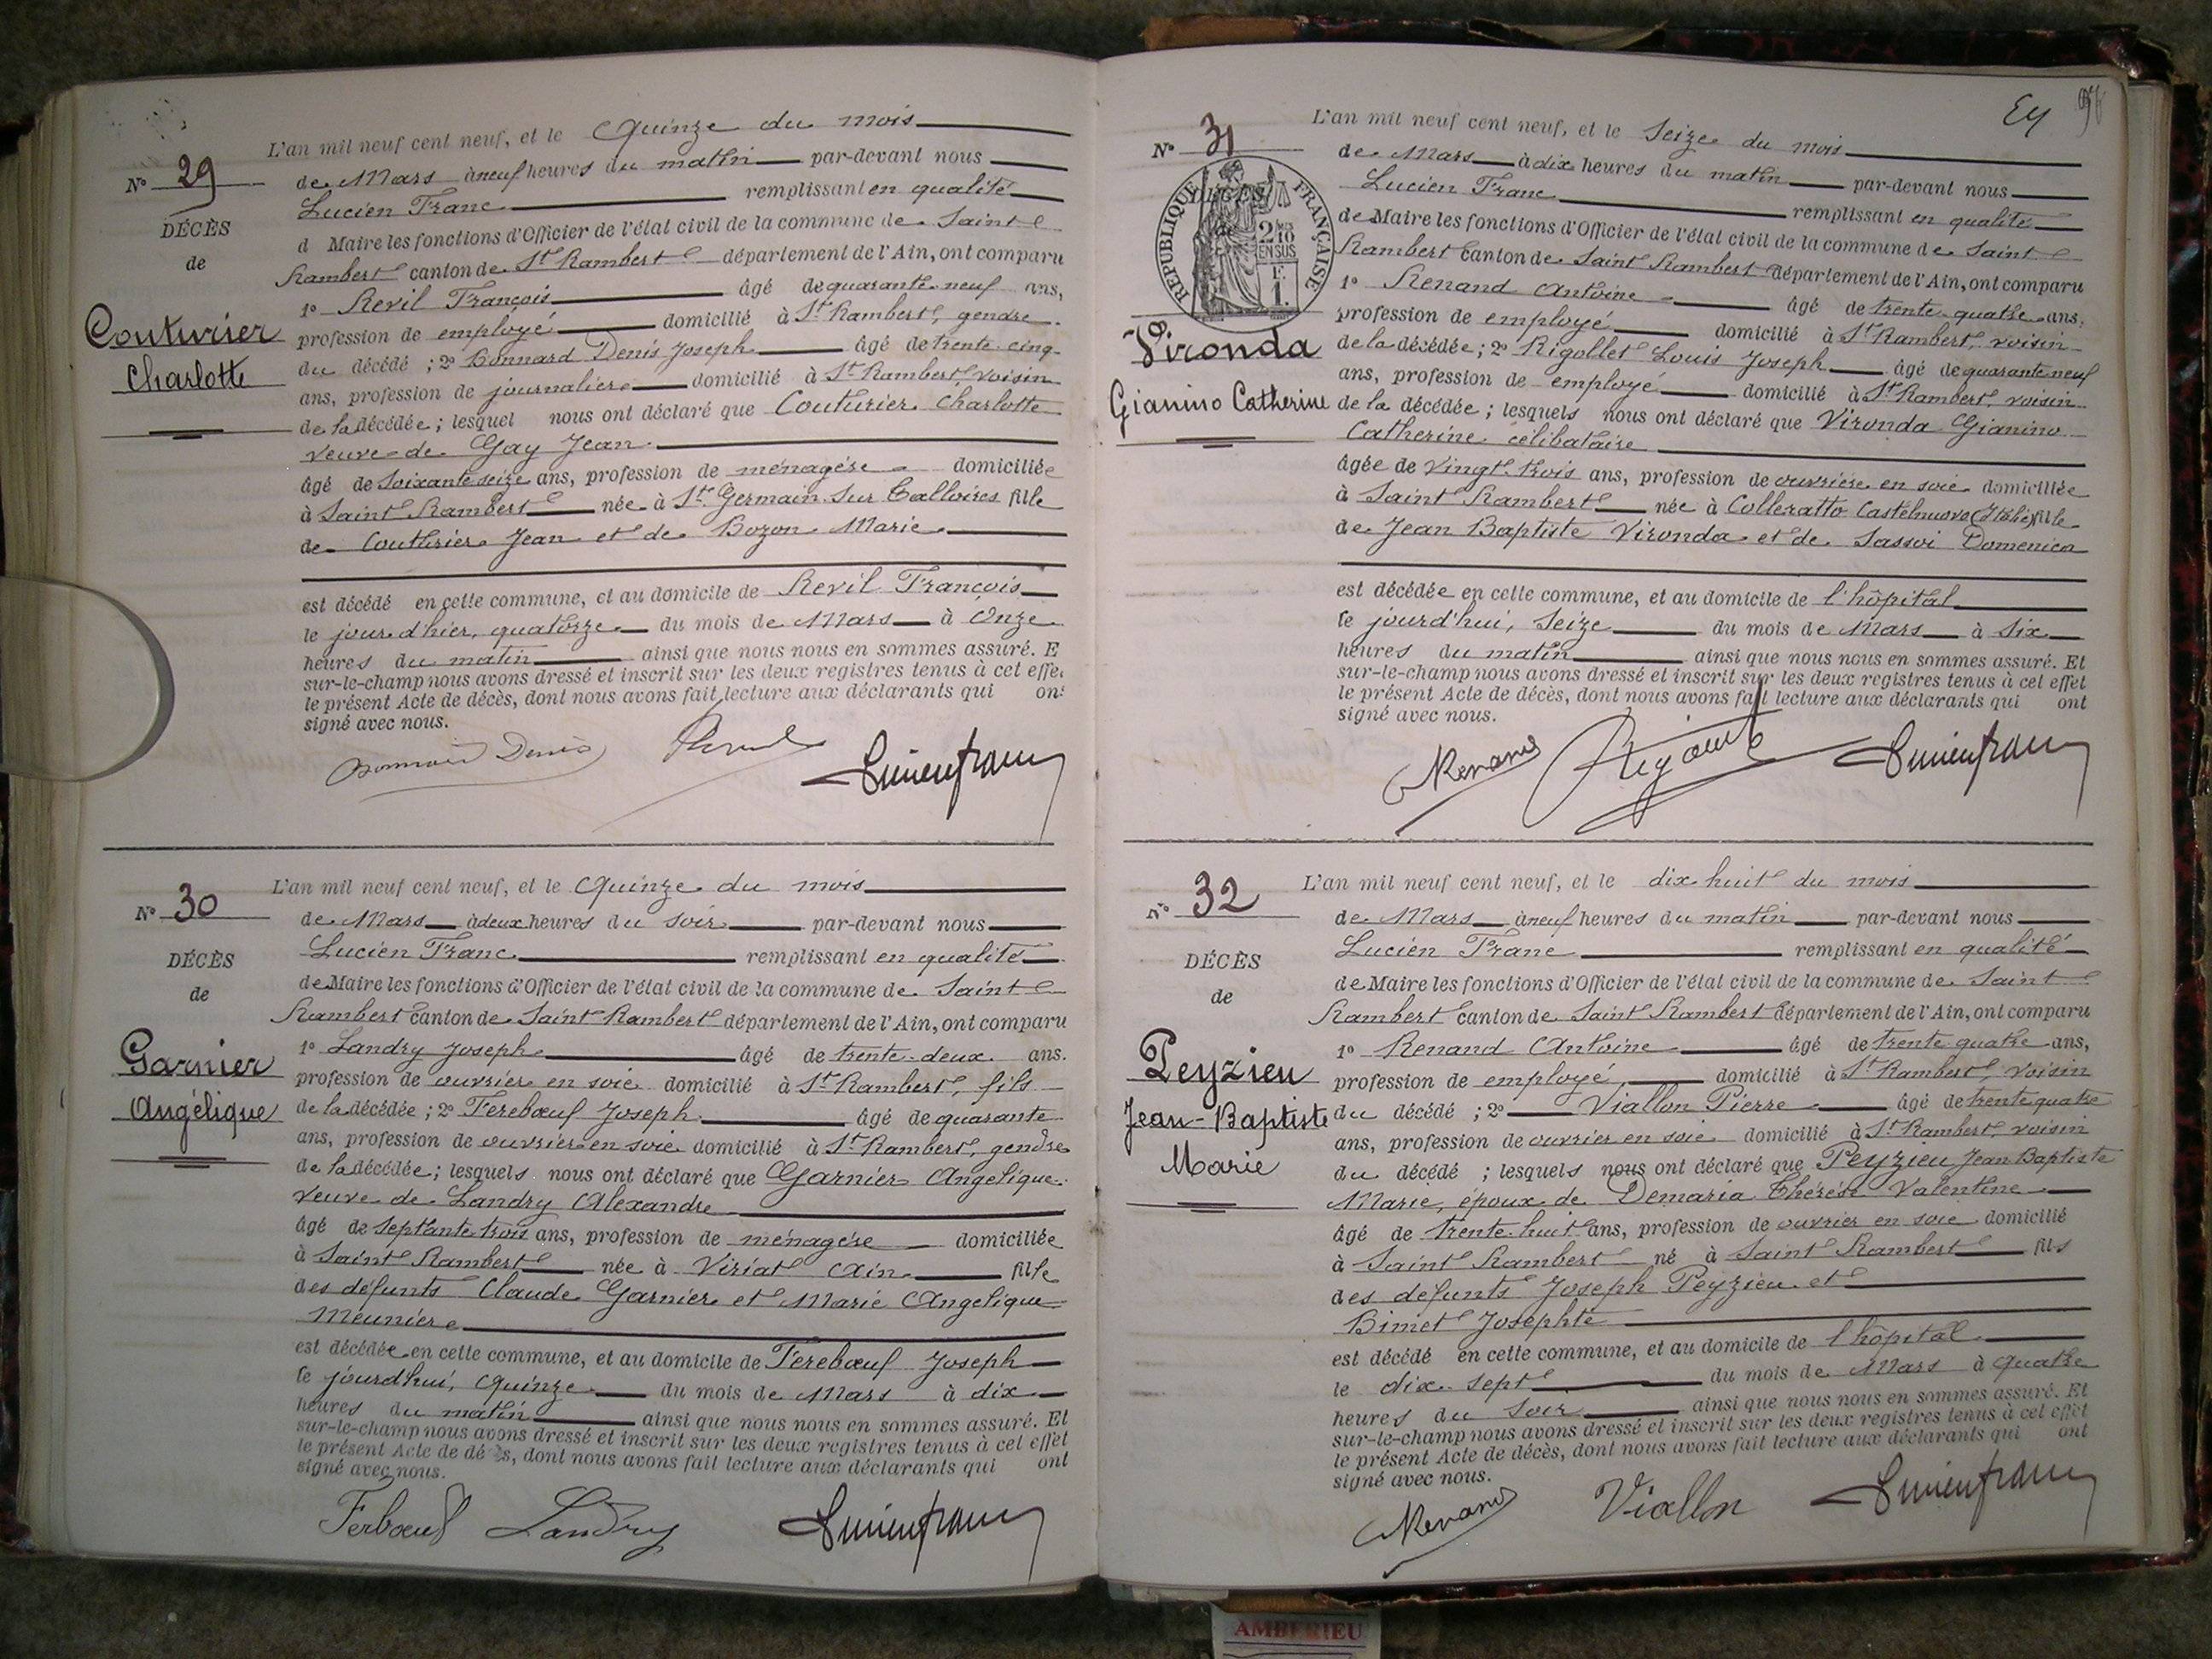 L'an mil neuf cent neuf, et le quinze du mois
N° 29
de Mars à neuf heures du matin par-devant nous
Lucien Franc remplissant en qualité
DÉCÈS
d Maire les fonctions d'Officier de l'état civil de la commune de Saint
de
Rambert canton de St Rambert département de l'Ain, ont comparu
1° Revil François âgé de quarante neuf ans,
Couturier
profession de employé domicilié à St Rambert, gendre
du décédé ; 2° Bonnard Denis Joseph âgé de trente cinq
Charlotte
ans, profession de journalier domicilié à St Rambert, voisin
de la décédée ; lesquel nous ont déclaré que Couturier Charlotte
veuve de Gay Jean
âgé de Soixante seize ans, profession de ménagère domiciliée
à Saint Rambert née à St Germain sur Talloires fille
de Couturier Jean et de Bozon Marie
est décédé en cette commune, et au domicile de Revil François
le jour d'hier, quatorze du mois de Mars à Onze
heures du matin ainsi que nous nous en sommes assuré. E
sur-le-champ nous avons dressé et inscrit sur les deux registres tenus à cet effe
le présent Acte de décès, dont nous avons fait lecture aux déclarants qui on
signé avec nous.
Bonnard Denis Revil Lucien franc
L'an mil neuf cent neuf, et le Quinze du mois
N° 30
de Mars à deux heures du soir par-devant nous
DÉCÈS
Lucien Franc remplissant en qualité
de
de Maire les fonctions d'Officier de l'état civil de la commune de Saint
Rambert canton de Saint Rambert département de l'Ain, ont comparu
1° Landry Joseph âgé de trente-deux ans.
Garnier
profession de ouvrier en soie domicilié à St Rambert, fils
Angélique
de la décédée ; 2° Terebœuf Joseph âgé de quarante
ans, profession de ouvrier en soie domicilié à St Rambert, gendre
de la décédée ; lesquels nous ont déclaré que Garnier Angelique
veuve de Landry Alexandre
âgé de Septante trois ans, profession de ménagère domiciliée
à Saint Rambert née à Viriat Ain fille
des défunts Claude Garnier et Marie Angelique
Meunier
est décédée en cette commune, et au domicile de Terebœuf Joseph
le jourd'hui, quinze du mois de Mars à dix
heures du matin ainsi que nous nous en sommes assuré. Et
sur-le-champ nous avons dressé et inscrit sur les deux registres tenus à cet effet
le présent Acte de décès, dont nous avons fait lecture aux déclarants qui ont
signé avec nous.
Ferbœuf Landry Lucien franc
L'an mil neuf cent neuf, et le Seize du mois
N° 31
de Mars à dix heures du matin par-devant nous
DÉCÈS
RÉPUBLIQUE FRANÇAISE
2/10 EN SUS
1 F.
Lucien Franc remplissant en qualité
de Maire les fonctions d'Officier de l'état civil de la commune de Saint
Rambert canton de Saint Rambert département de l'Ain, ont comparu
1° Renand Antoine âgé de trente-quatre ans,
profession de employé domicilié à St Rambert, voisin
Vironda
de la décédée ; 2° Rigollet Louis Joseph âgé de quarante neuf
ans, profession de employé domicilié à St Rambert, voisin
Gianino Catherine
de la décédée ; lesquels nous ont déclaré que Vironda Gianino
Catherine célibataire
âgée de vingt-trois ans, profession de ouvrière en soie domiciliée
à Saint Rambert née à Colleratto Castelnuovo (Italie) fille
de Jean Baptiste Vironda et de Sassoi Domenica
est décédée en cette commune, et au domicile de l'hôpital
le jourd'hui, Seize du mois de Mars à Six
heures du matin ainsi que nous nous en sommes assuré. Et
sur-le-champ nous avons dressé et inscrit sur les deux registres tenus à cet effet
le présent Acte de décès, dont nous avons fait lecture aux déclarants qui ont
signé avec nous.
Renand Lucien franc
L'an mil neuf cent neuf, et le dix huit du mois
N° 32
de Mars à neuf heures du matin par-devant nous
DÉCÈS
Lucien Franc remplissant en qualité
de
de Maire les fonctions d'Officier de l'état civil de la commune de Saint
Rambert canton de Saint Rambert département de l'Ain, ont comparu
1° Renand Antoine âgé de trente quatre ans,
Peyzieu
profession de employé, domicilié à St Rambert, voisin
Jean-Baptiste
du décédé ; 2° Viallon Pierre âgé de trente quatre
ans, profession de ouvrier en soie domicilié à St Rambert, voisin
Marie
du décédé ; lesquels nous ont déclaré que Peyzieu Jean Baptiste
Marie, époux de Demaria Thérèse Valentine
âgé de trente-huit ans, profession de ouvrier en soie domicilié
à Saint Rambert né à Saint Rambert fils
des défunts Joseph Peyzieu et
Bimet Josephte
est décédé en cette commune, et au domicile de l'hôpital
le dix-sept du mois de Mars à quatre
heures du Soir ainsi que nous nous en sommes assuré. Et
sur-le-champ nous avons dressé et inscrit sur les deux registres tenus à cet effet
le présent Acte de décès, dont nous avons fait lecture aux déclarants qui ont
signé avec nous.
Renand Viallon Lucien franc
AMBERIEU